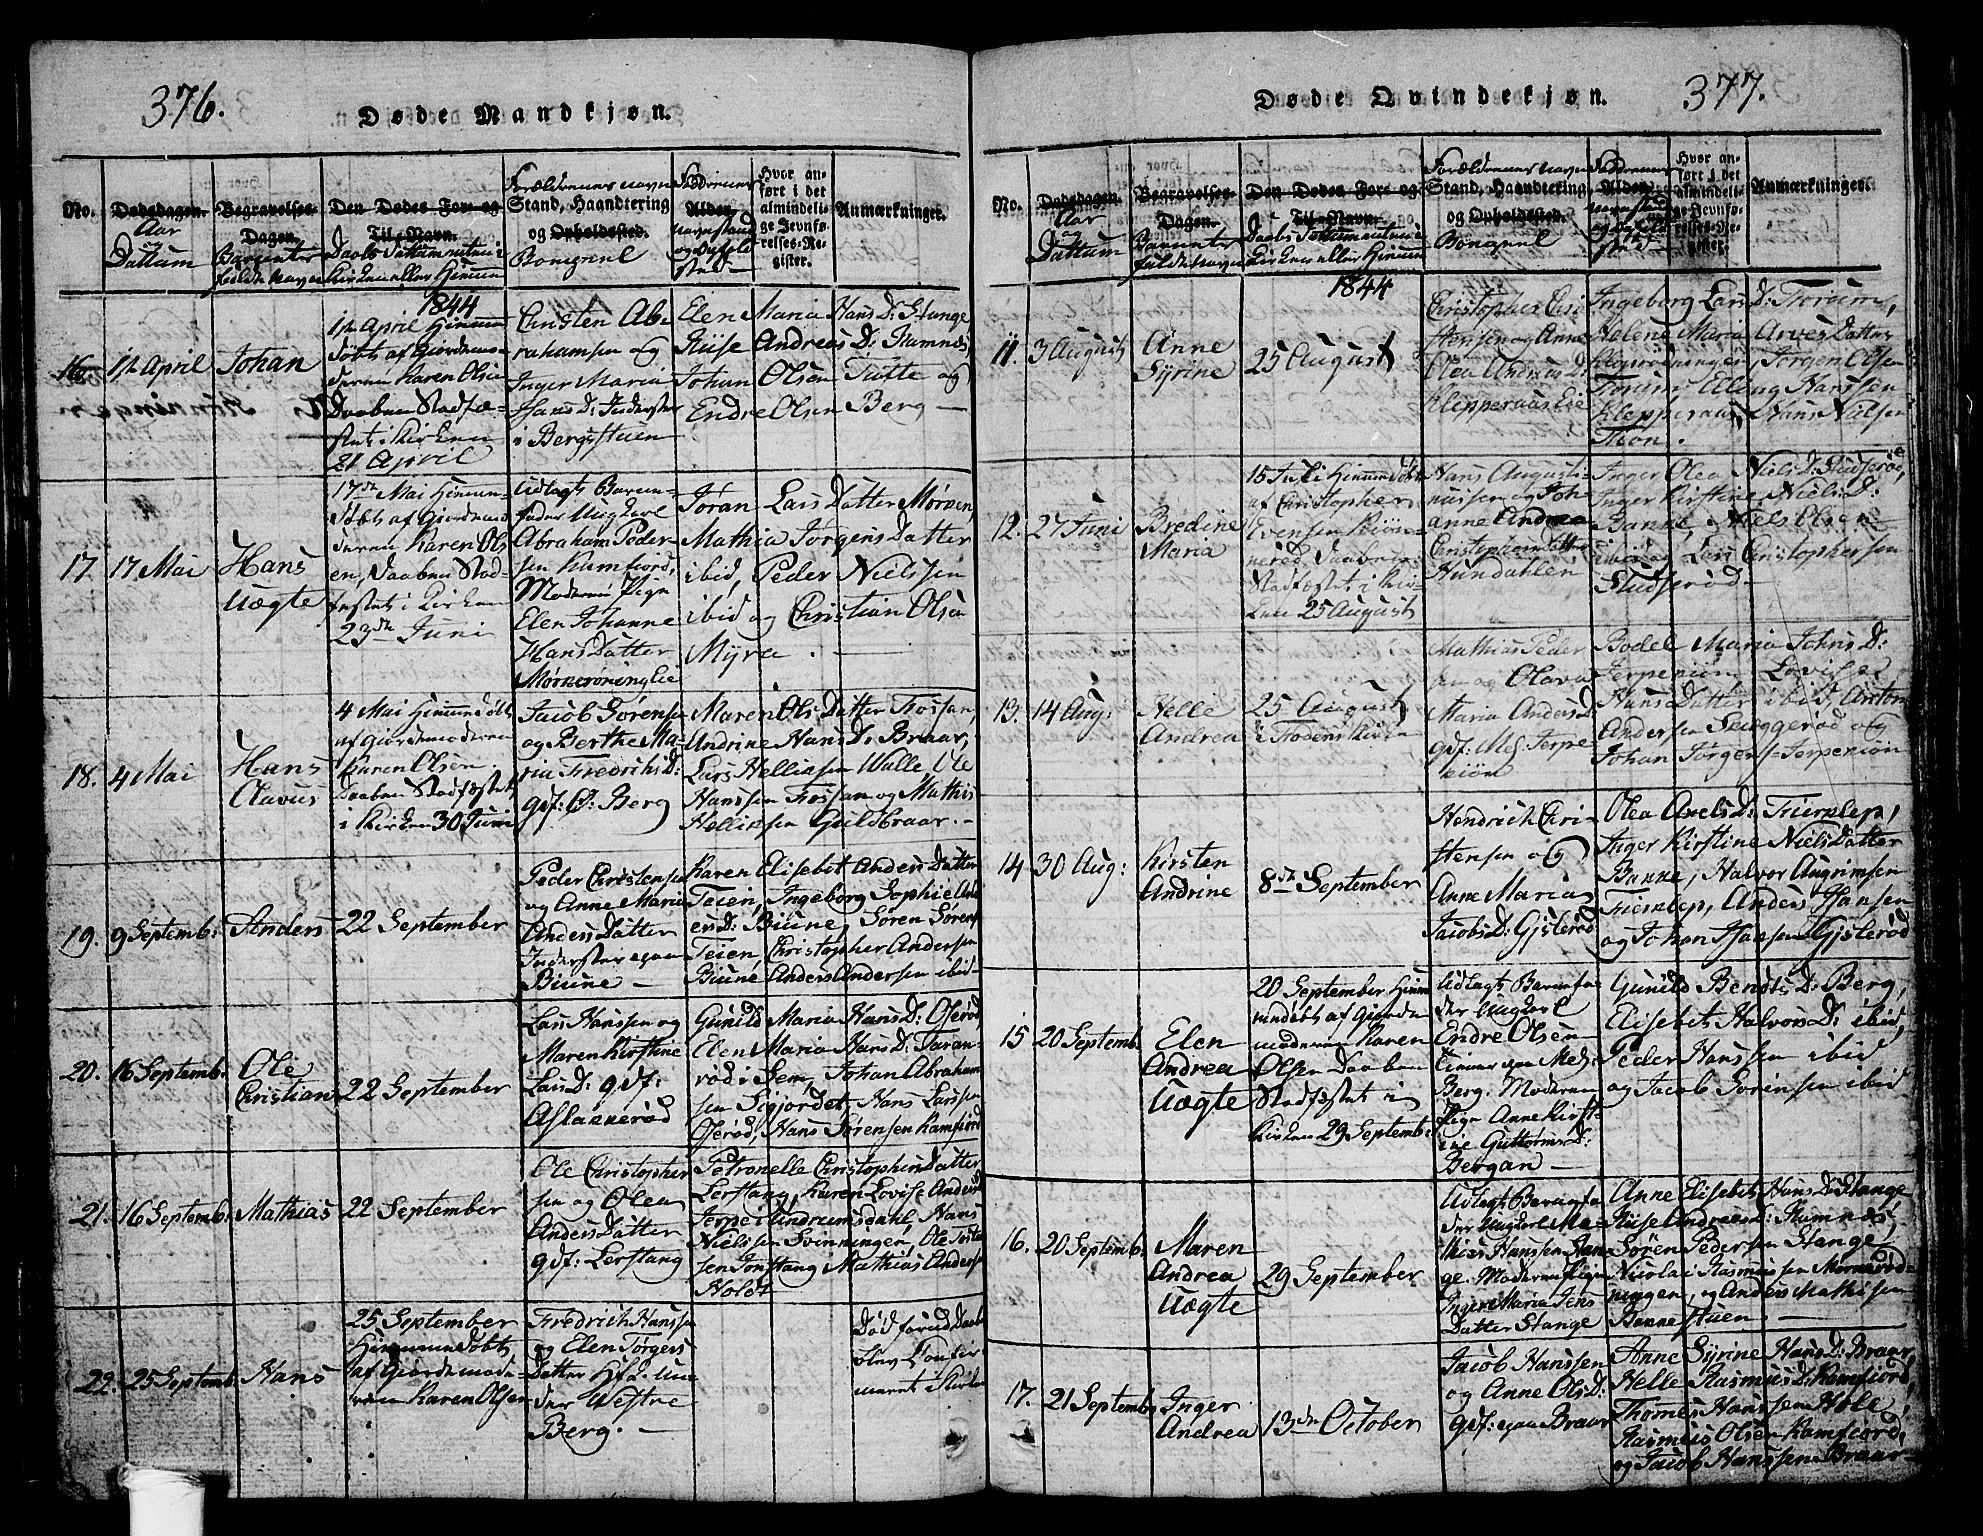 376.
Døde Mandkjøn.
No.
Dødsdagen.
Aar
Dattum
Begravelses-
Dagen.
Barnets
fulde Navn
Den Dødes For- og
Til-Navn.
Daabs Dattum enten i
Kirken eller Hiemme
Forældrenes Navn
Stand, Haandtering
og Opholdssted.
Bopæl
Faddernes
Alder.
Navn Stand
og Opholds
sted
Hvor an-
ført i det
almindeli-
ge Jevnfø-
relses-Re-
gister.
Anmærkninger.
1844
16
April
Johan
April Hiemme
døbt af Giordemo-
deren Karen Olsen
Daaben Stadfæ-
stet i Kirken
21 April
Christen Ab-
rahamsen og
Inger Maria
Hans D: Inderster
i Bergsstuen
Elen Maria Hans D: Stange,
Riise Andreas D: Ramnæs,
Johan Olsen Tufte og
Endre Olsen Berg —
17.
17 Mai
Hans
Uægte
17de Mai Hiemme-
døbt af Giordemo-
deren Karen Ols-
en, Daaben Stad-
fæstet i Kirken
23de Juni
Udlagt Barne-
fader Ungkarl
Abraham Peder-
sen Ramfiord,
Moderen Pige
Elen Johanne
Hans Datter
Mørneröningeie
Jøran Lars Datter Mørken,
Mathia Jørgens Datter
ibid, Peder Nielssen
ibid og Christian Olsen
Myra. —
18.
4 Mai
Hans
Olavus
4 Mai Hiemmedøbt
af Giordemoderen
Karen Olsen.
Daaben Stadfæstet,
i Kirken 30 Juni
Jacob Sørensen
og Berthe Ma-
ria Fredrichs D:
gdf: Ø: Berg
Maren Ols Datter Fossan,
Andrine Hans D: Braar,
Lars Helliesen Walle, Ole
Hanssen Fossan og Mathis
Helliesen Guldbraar. —
19.
9 Septemb:
Anders
22 September
Peder Christensen
og Anne Maria
Anders Datter
Inderster paa
Biune —
Karen Elisebet Anders Datter
Teien, Ingeborg Sophie And-
ers D: Biune, Søren Sørens
Teien, Christopher Andersen
Biune Anders Andersen ibid
20.
16 Septemb.
Ole
Christian
22 September
Lars Hanssen og
Maren Kirstine
Lars D: gdf:
Aslaknerød
Gunild Maria Hans D: Oserød
Elen Maria Hans D: Taran-
rød i Sem, Johan Abraham
sen Sigjordet Hans Larssen
Oserød, Hans Sørensen Ramfiord
21.
16 Septemb.
Mathias
22 September
Ole Christopher
sen og Olea
Anders Datter
gdf: Lerstang
Petronelle Christophers Datter
Lerstang, Karen Lovise Anders D
Jerpe i Undrumsdahl, Hans
Nielssen Svinningen, Ole Tosten
sen Sonstang Mathias Anders
Holdt
22.
25 Septemb.
Hans
25 September
Hiemmedøbt
af Giordemode-
ren Karen Olsen
Fredrich Hanssen
og Elen Jørgens
Datter Hfd. un-
der Westre
Berg. —
Død forend Daaben
blev Confir-
meret i Kirken
377.
Døde Qvindekjøn.
No.
Dødsdagen.
Aar
og
Dattum
Begravelses-
Dagen.
Barnets
fulde Navn
Den Dødes For- og
Til-Navn.
Daabs Dattum enten i
Kirken eller Hiemme
Forældrenes Navn
Stand, Haandtering
og Opholdssted.
Bopæl
Faddernes
Alder.
Navn Stand
og Opholds
sted
Hvor an-
ført i det
almindeli-
ge Jevnfø-
relses-Re-
gister.
Anmærkninger.
1844
11.
3 August
Anne
Syrine
25 August
Christopher Chri
stensen og Anne
Olea Andreas D:
Klepperaas Eie
Ingeborg Lars D: Frorum,
Helene Maria Arves Datter
Jørgen Olsen
Frorum Ole Hanssen
Klepperaas Hans Nielsen
12.
27 Juni
Bredine
Maria
15 Juli Hiemmedøbt
af Christopher
Evensen Kiøn-
nerød, Daaben
Stadfæstet i Kir-
ken 25 August
Hans Augusti-
nussen og Joh-
anne Andrea
Christophers Datter
Hundahlen
Inger Olea Niels D: Studserød,
Inger Kirstine Niels D:
Banne, Niels Olsen
ibid og Lars Christophersen
Studserød
13.
14 Aug:
Helle
Andrea
25 August
i Fodens Kirke
Mathias Peder
sen og Olava
Maria Anders D
gdf: Mel. Jerpe
kiøn
Bodel Maria Johns D:
Jerpekiøn, Lovise
Hans Datter ibid, Anton
Andersen Snuggerød og
Johan Jørgens: Jerpekiøn
14
30 Aug:
Kirsten
Andrine
8de September
Hendrich Chri-
stensen og
Anne Maria
Jacobs D: Gjslerød
Olea Axels D: Fierklep,
Inger Kirstine Niels Datter
Banne, Halvor Augrimsen
Fierklep, Anders Hansen
og Johan Hansen Gjslerød
15
20 Septemb.
Elen
Andrea
Uægte
20 September Hiem
medøbt af Giorde
moderen Karen
Olsen Daaben
Stadfæstet i
Kirken 29 Septemb:
Udlagt Barnefa-
der Ungkarl
Endre Olsen
Tiener paa Mel.
Berg. Moderen
Pige Anne Kirst-
ine Guttorms D:
Bergan —
Gunild Bendts D: Berg,
Elisebet Halvors D: ibid,
Peder Hanssen ibid
og Jacob Sorensen ibid
16.
20 Septemb.
Maren
Andrea
Uægte
29 September
Udlagt Barnefa
der Ungkarl Ma-
thias Hanssen Stan
ge. Moderen Pigen
Inger Maria Jens
Datter Stange
Anne Elisebet Hans D: Stange
Riise Andreas D: Ramnæs,
Søren Pedersen Stange
Nicolai Rasmussen Mørnerød-
ningen, og Anders Mathisen
Banne Stuen. —
17.
21 Septemb
Inger
Andrea
13de October
Jacob Hanssen
og Anne Ols D:
gdf: paa Braar
Anne Syrine Hans D: Braar,
Helle Rasmus D: Ramfiord,
Thomes Hanssen Hole,
Rasmus Olsen Ramfiord,
og Jacob Hanssen Braar —